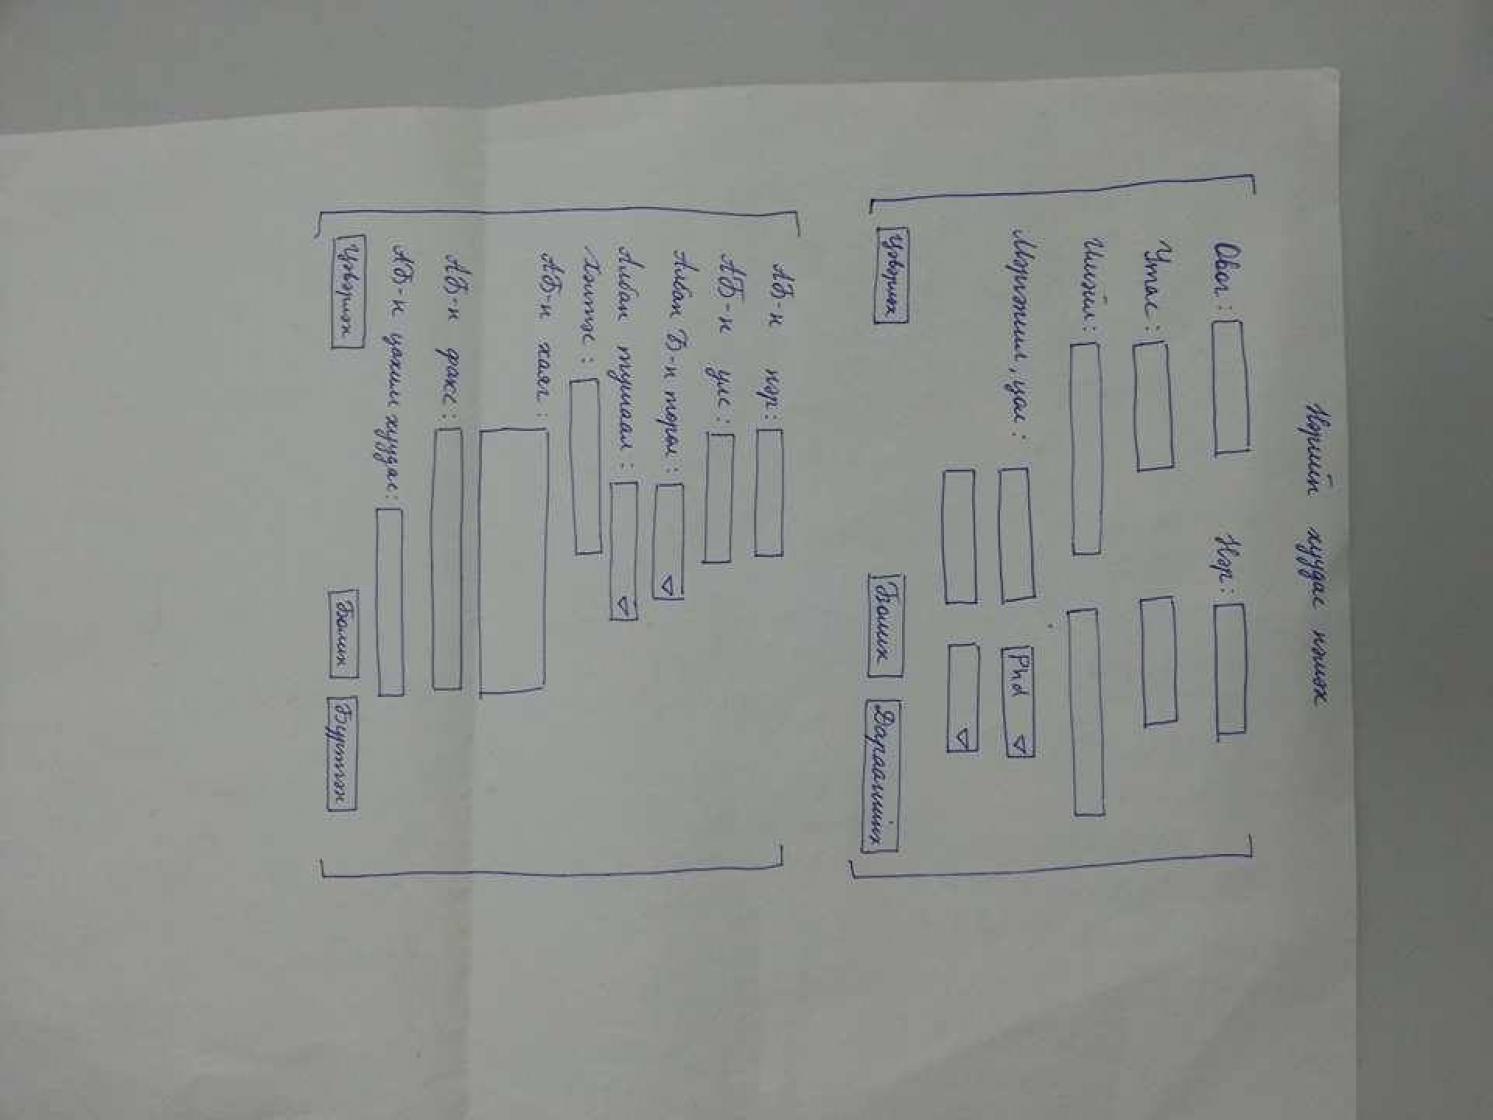 Нэрийн хуудас нэмэх
Овог: Нэр:
Утас:
Имэйл:
Мэргэжил, цол: Phd
Цэвэрлэх Болих Дараагийнх
АБ-н нэр:
АБ-н улс:
Албан Б-н төрөл:
Албан тушаал:
Хэлтэс:
АБ-н хаяг:
АБ-н факс:
АБ-н цахим хуудас:
Цэвэрлэх Болих Бүртгэх